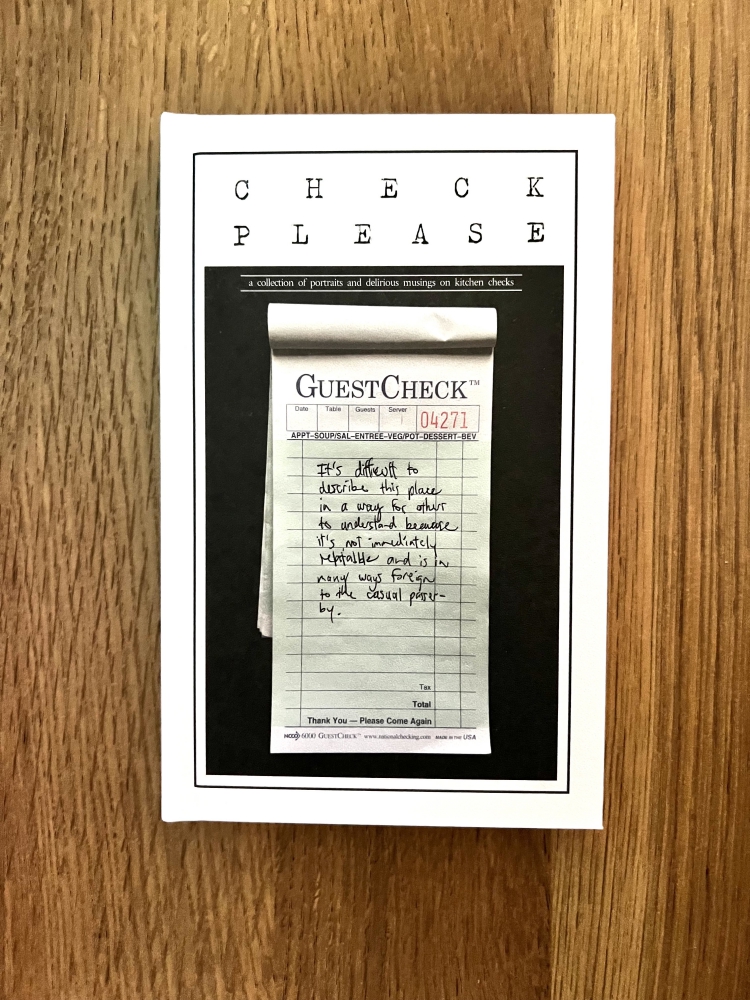 C H E C K
P L E A S E
a collection of portraits and delirious musings on kitchen checks
GUESTCHECK™
Date Table Guests Server
04271
APPT–SOUP/SAL–ENTREE–VEG/POT–DESSERT–BEV
It's difficult to
describe this place
in a way for others
to understand because
it's not immediately
relatable and is in
many ways foreign
to the casual passer-
by.
Tax
Total
Thank You — Please Come Again
NCCO 6000 GUESTCHECK™ www.nationalchecking.com MADE IN THE USA